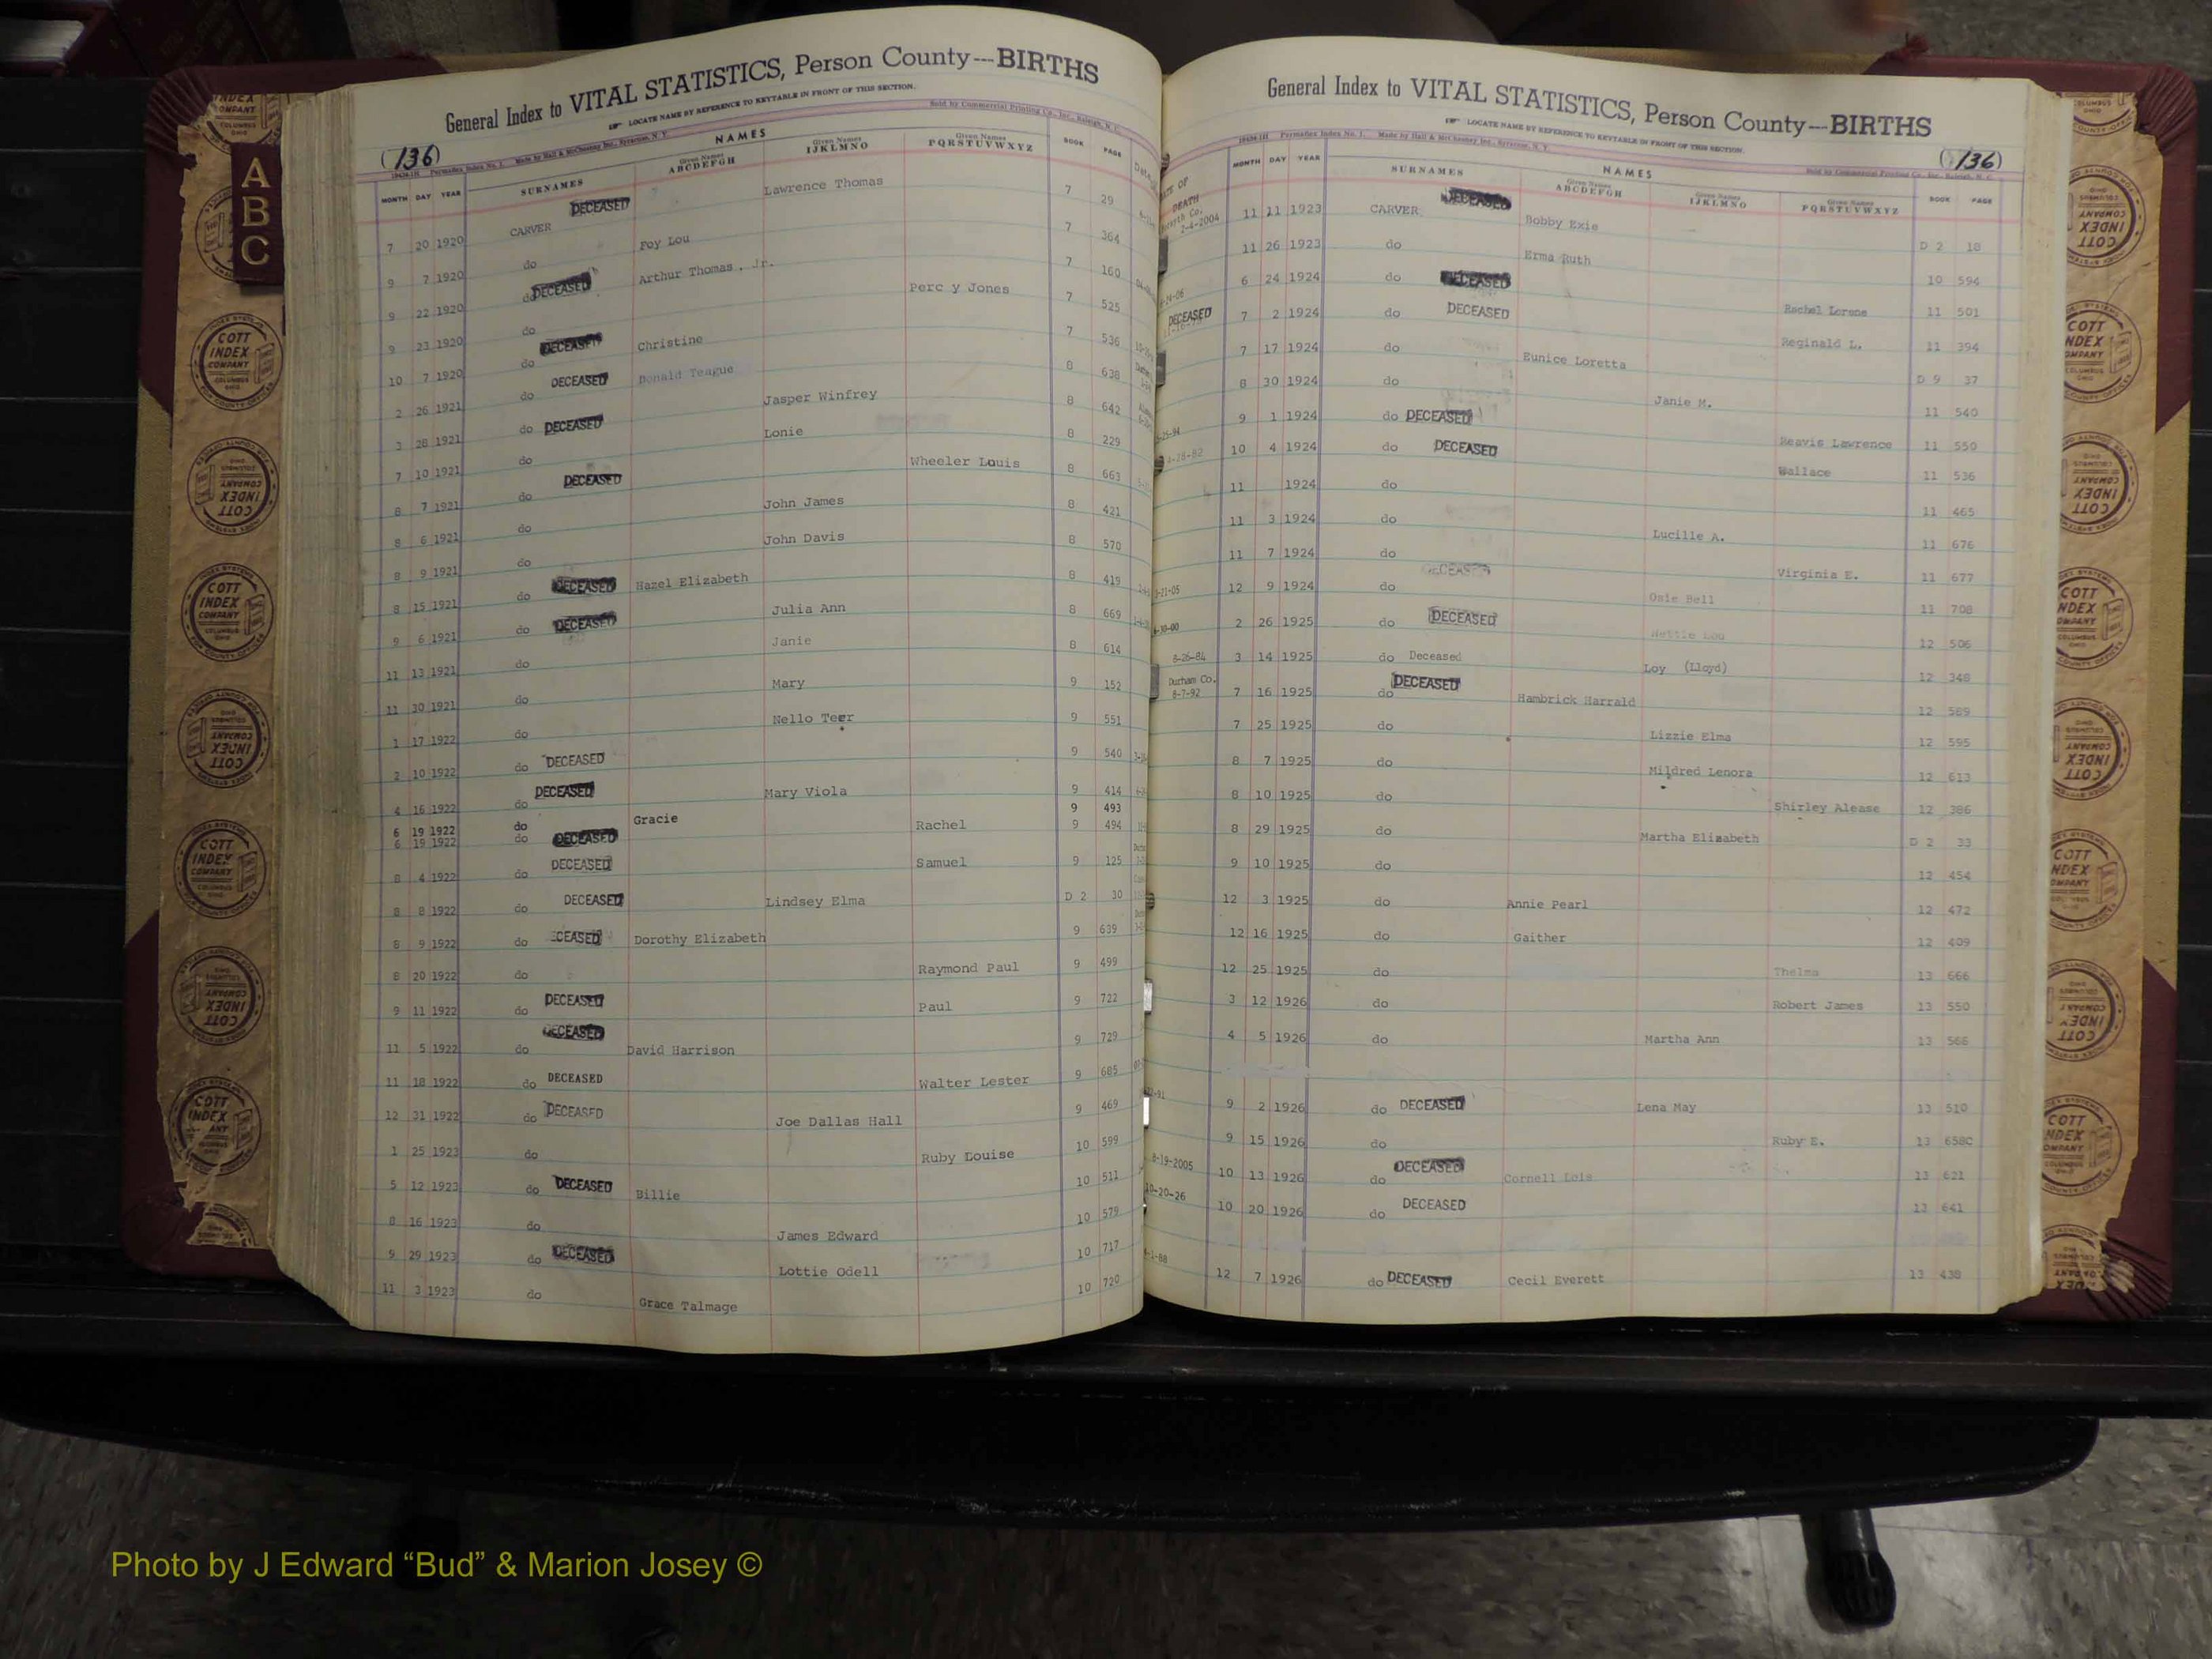 General Index to VITAL STATISTICS, Person County---BIRTHS
LOCATE NAME BY REFERENCE TO KEYTABLE IN FRONT OF THIS SECTION.
Sold by Commercial Printing Co., Inc., Raleigh, N. C.
(136)
Made by Hall & McChesney Inc., Syracuse, N. Y.
NAMES
MONTH DAY YEAR SURNAMES Given Names ABCDEFGH Given Names IJKLMNO Given Names PQRSTUVWXYZ BOOK PAGE
7 20 1920 CARVER DECEASED Lawrence Thomas 7 29
9 7 1920 do Foy Lou 7 364
9 22 1920 do DECEASED Arthur Thomas, Jr. 7 160
9 23 1920 do Perc y Jones 7 525
10 7 1920 do DECEASED Christine 7 536
2 26 1921 do DECEASED Donald Teague 8 638
3 28 1921 do DECEASED Jasper Winfrey 8 642
7 10 1921 do Lonie 8 229
8 7 1921 do DECEASED Wheeler Louis 8 663
8 6 1921 do John James 8 421
8 9 1921 do John Davis 8 570
8 15 1921 do DECEASED Hazel Elizabeth 8 419
9 6 1921 do DECEASED Julia Ann 8 669
11 13 1921 do Janie 8 614
11 30 1921 do Mary 9 152
1 17 1922 do Nello Teer 9 551
2 10 1922 do DECEASED 9 540
4 16 1922 do DECEASED Mary Viola 9 414
6 19 1922 do Gracie 9 493
6 19 1922 do DECEASED Rachel 9 494
8 4 1922 do DECEASED Samuel 9 125
8 8 1922 do DECEASED Lindsey Elma D 2 30
8 9 1922 do CEASED Dorothy Elizabeth 9 639
8 20 1922 do Raymond Paul 9 499
9 11 1922 do DECEASED Paul 9 722
11 5 1922 do DECEASED David Harrison 9 729
11 18 1922 do DECEASED Walter Lester 9 685
12 31 1922 do DECEASED Joe Dallas Hall 9 469
1 25 1923 do Ruby Louise 10 599
5 12 1923 do DECEASED Billie 10 511
8 16 1923 do James Edward 10 579
9 29 1923 do DECEASED Lottie Odell 10 717
11 3 1923 do Grace Talmage 10 720
General Index to VITAL STATISTICS, Person County---BIRTHS
LOCATE NAME BY REFERENCE TO KEYTABLE IN FRONT OF THIS SECTION.
(136)
Made by Hall & McChesney Inc., Syracuse, N. Y.
NAMES
MONTH DAY YEAR SURNAMES Given Names ABCDEFGH Given Names IJKLMNO Given Names PQRSTUVWXYZ BOOK PAGE
2-4-2004 11 21 1923 CARVER DECEASED Bobby Exie D 2 18
11 26 1923 do Erma Ruth 10 594
6 24 1924 do DECEASED Rachel Lorene 11 501
DECEASED 7 2 1924 do DECEASED Reginald L. 11 394
7 17 1924 do Eunice Loretta D 9 37
8 30 1924 do Janie M. 11 540
9 1 1924 do DECEASED Reavis Lawrence 11 550
10 4 1924 do DECEASED Wallace 11 536
11 1924 do 11 465
11 3 1924 do Lucille A. 11 676
11 7 1924 do Virginia E. 11 677
12 9 1924 do DECEASED Osie Bell 11 708
2 26 1925 do DECEASED Nettie Lou 12 506
8-26-84 3 14 1925 do Deceased Loy (Lloyd) 12 348
Durham Co. 8-7-92 7 16 1925 do DECEASED Hambrick Harrald 12 589
7 25 1925 do Lizzie Elma 12 595
8 7 1925 do Mildred Lenora 12 613
8 10 1925 do Shirley Alease 12 386
8 29 1925 do Martha Elizabeth D 2 33
9 10 1925 do 12 454
12 3 1925 do Annie Pearl 12 472
12 16 1925 do Gaither 12 409
12 25 1925 do Thelma 13 666
3 12 1926 do Robert James 13 550
4 5 1926 do Martha Ann 13 566
9 2 1926 do DECEASED Lena May 13 510
9 15 1926 do Ruby E. 13 658C
8-19-2005 10 13 1926 do DECEASED Cornell Lois 13 621
10-20-26 10 20 1926 do DECEASED 13 641
12 7 1926 do DECEASED Cecil Everett 13 438
A
B
C
COTT INDEX COMPANY COLUMBUS OHIO
Photo by J Edward “Bud” & Marion Josey ©